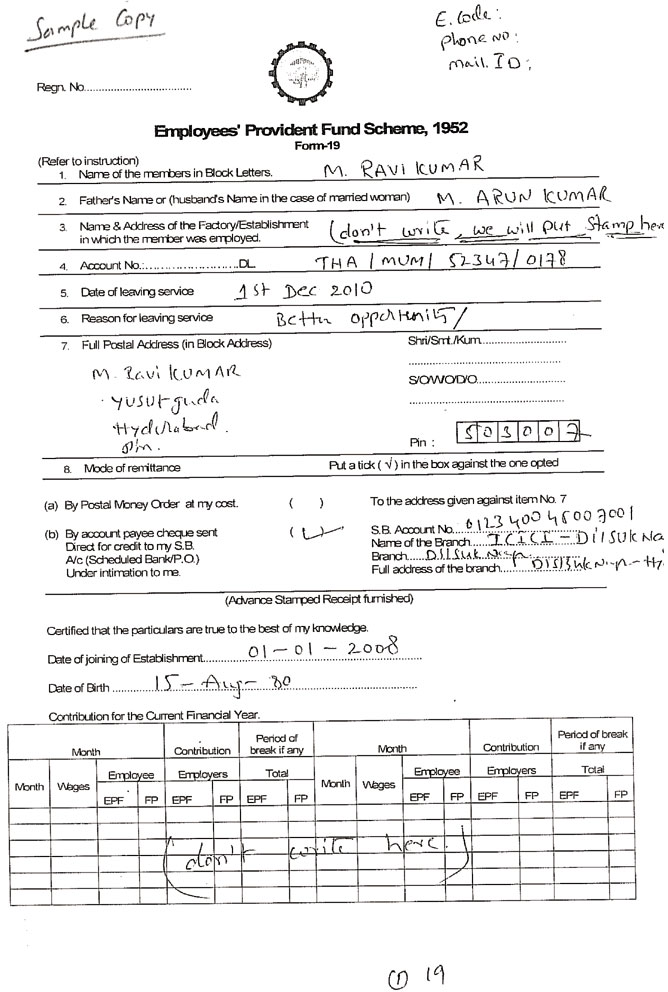 Sample Copy
E. Code:
Phone NO:
mail. ID:
Regn. No.................................
Employees' Provident Fund Scheme, 1952
Form-19
(Refer to instruction)
1. Name of the members in Block Letters. M. RAVI KUMAR
2. Father's Name or (husband's Name in the case of married woman) M. ARUN KUMAR
3. Name & Address of the Factory/Establishment
in which the member was employed. (don't write, we will put Stamp here
4. Account No.:..........................DL. THA / MUM / 52347 / 0178
5. Date of leaving service 1st Dec 2010
6. Reason for leaving service Better opportunity
7. Full Postal Address (in Block Address) Shri/Smt./Kum..........................
M. Ravi KUMAR
S/O/W/O/D/O...........................
Yusufguda
Hyderabad.
Pin. Pin : 503007
8. Mode of remittance Put a tick ( √ ) in the box against the one opted
(a) By Postal Money Order at my cost. ( ) To the address given against item No. 7
(b) By account payee cheque sent (✓) S.B. Account No. 012340045007001
Direct for credit to my S.B. Name of the Branch ICICI - DilSukNa
A/c (Scheduled Bank/P.O.) Branch DilSuk
Under intimation to me. Full address of the branch. - Hy
(Advance Stamped Receipt furnished)
Certified that the particulars are true to the best of my knowledge.
Date of joining of Establishment 01 - 01 - 2008
Date of Birth 15 - Aug - 80
Contribution for the Current Financial Year.
Month Contribution Period of break if any Month Contribution Period of break if any
Month Wages Employee Employers Total Month Wages Employee Employers Total
EPF FP EPF FP EPF FP EPF FP EPF FP EPF FP
(don't write here.)
(1) 19